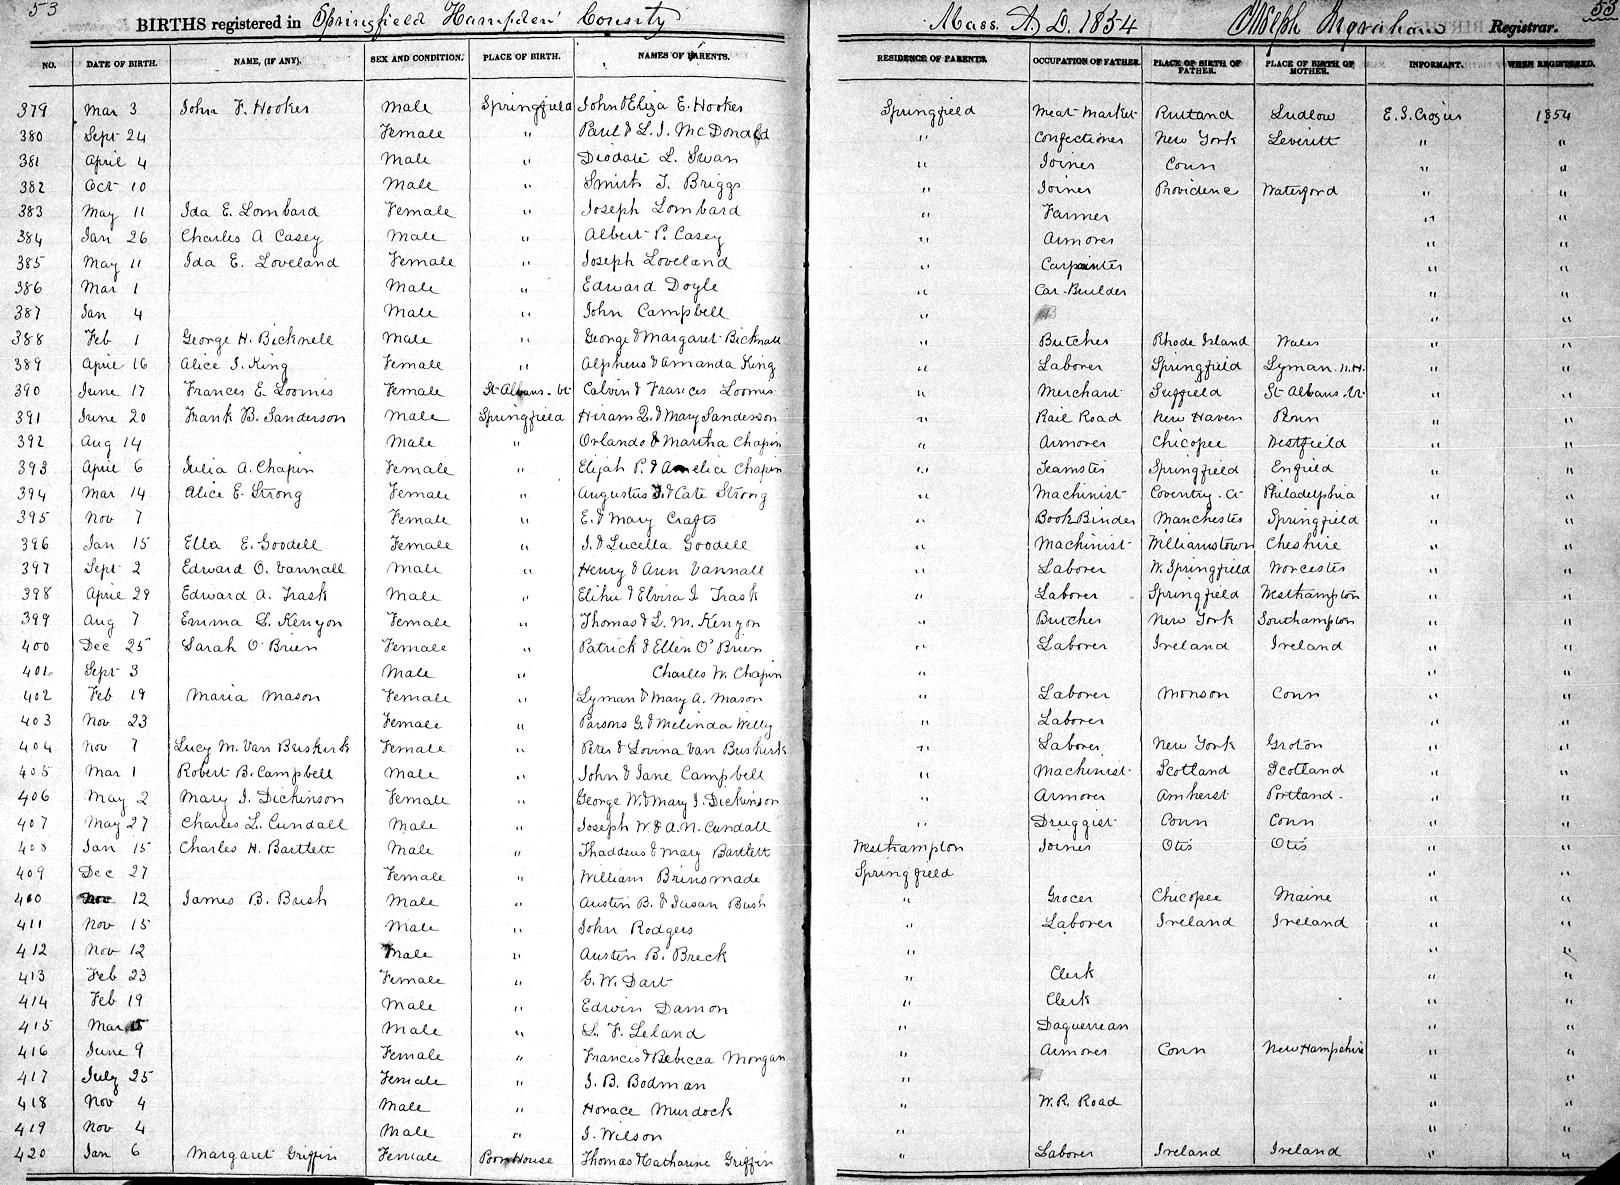 53 BIRTHS registered in Springfield Hampden County Mass. A.D. 1854 Joseph Ingraham Registrar. 53
NO. DATE OF BIRTH. NAME, (IF ANY). SEX AND CONDITION. PLACE OF BIRTH. NAMES OF PARENTS. RESIDENCE OF PARENTS. OCCUPATION OF FATHER. PLACE OF BIRTH OF FATHER. PLACE OF BIRTH OF MOTHER. INFORMANT. WHEN REGISTERED.
379 Mar 3 John F. Hooker Male Springfield John & Eliza E. Hooker Springfield Meat Market Rutland Ludlow E. S. Crosier 1854
380 Sept 24 Female " Paul & L. J. McDonald " Confectioner New York Leveritt " "
381 April 4 Male " Diodate L. Swan " Joiner Conn " "
382 Oct 10 Male " Smith T. Briggs " Joiner Providence Waterford " "
383 May 11 Ida E. Lombard Female " Joseph Lombard " Farmer " "
384 Jan 26 Charles A Casey Male " Albert P. Casey " Armorer " "
385 May 11 Ida E. Loveland Female " Joseph Loveland " Carpainter " "
386 Mar 1 Male " Edward Doyle " Car-Builder " "
387 Jan 4 Male " John Campbell " " "
388 Feb 1 George H. Bicknell Male " George & Margaret Bicknall " Butcher Rhode Island Wales " "
389 April 16 Alice J. King Female " Alpheus & Amanda King " Laborer Springfield Lyman N.H. " "
390 June 17 Frances E. Loomis Female St Albans. Vt Calvin & Frances Loomis " Merchant Suffield St Albans. Vt. " "
391 June 20 Frank B. Sanderson Male Springfield Hiram Q. & Mary Sanderson " Rail Road New Haven Penn " "
392 Aug 14 Male " Orlando & Martha Chapin " Armorer Chicopee Westfield " "
393 April 6 Julia A. Chapin Female " Elijah P. & Amelia Chapin " Teamster Springfield Enfield " "
394 Mar 14 Alice E. Strong Female " Augustus J. & Cate Strong " Machinist Coventry. Ct Philadelphia " "
395 Nov 7 Female " E. & Mary Crafts " Book Binder Manchester Springfield " "
396 Jan 15 Ella E. Goodell Female " J. & Lucella Goodell " Machinist Williamstown Cheshire " "
397 Sept 2 Edward O. Vannall Male " Henry & Ann Vannall " Laborer W. Springfield Worcester " "
398 April 29 Edward A. Trask Male " Elihu & Elvira J. Trask " Laborer Springfield Westhampton " "
399 Aug 7 Emma L. Kenyon Female " Thomas & L. M. Kenyon " Butcher New York Southampton " "
400 Dec 25 Sarah O'Brien Female " Patrick & Ellen O'Brien " Laborer Ireland Ireland " "
401 Sept 3 Male " Charles W. Chapin " " "
402 Feb 19 Maria Mason Female " Lyman & Mary A. Mason " Laborer Monson Conn " "
403 Nov 23 Female " Parsons G. & Melinda Willy " Laborer " "
404 Nov 7 Lucy M. Van Buskirk Female " Peter & Lovina Van Buskirk " Laborer New York Groton " "
405 Mar 1 Robert B. Campbell Male " John & Jane Campbell " Machinist Scotland Scotland " "
406 May 2 Mary J. Dickinson Female " George W. & Mary J. Dickinson " Armorer Amherst Portland " "
407 May 27 Charles L. Cundall Male " Joseph W. & A. N. Cundall " Druggist Conn Conn " "
408 Jan 15 Charles H. Bartlett Male " Thaddeus & Mary Bartlett Westhampton Joiner Otis Otis " "
409 Dec 27 Female " William Brinsmade Springfield " "
410 Nov 12 James B. Bush Male " Austin B. & Susan Bush " Grocer Chicopee Maine " "
411 Nov 15 Male " John Rodgers " Laborer Ireland Ireland " "
412 Nov 12 Male " Austin B. Breck " " "
413 Feb 23 Female " G. W. Dart " Clerk " "
414 Feb 19 Male " Edwin Damon " Clerk " "
415 Mar 15 Male " L. F. Leland " Daguerrean " "
416 June 9 Female " Francis & Rebecca Morgan " Armorer Conn New Hampshire " "
417 July 25 Female " J. B. Bodman " " "
418 Nov 4 Male " Horace Murdock " W. R. Road " "
419 Nov 4 Male " J. Wilson " " "
420 Jan 6 Margaret Griffin Female Poor House Thomas & Catharine Griffin " Laborer Ireland Ireland " "